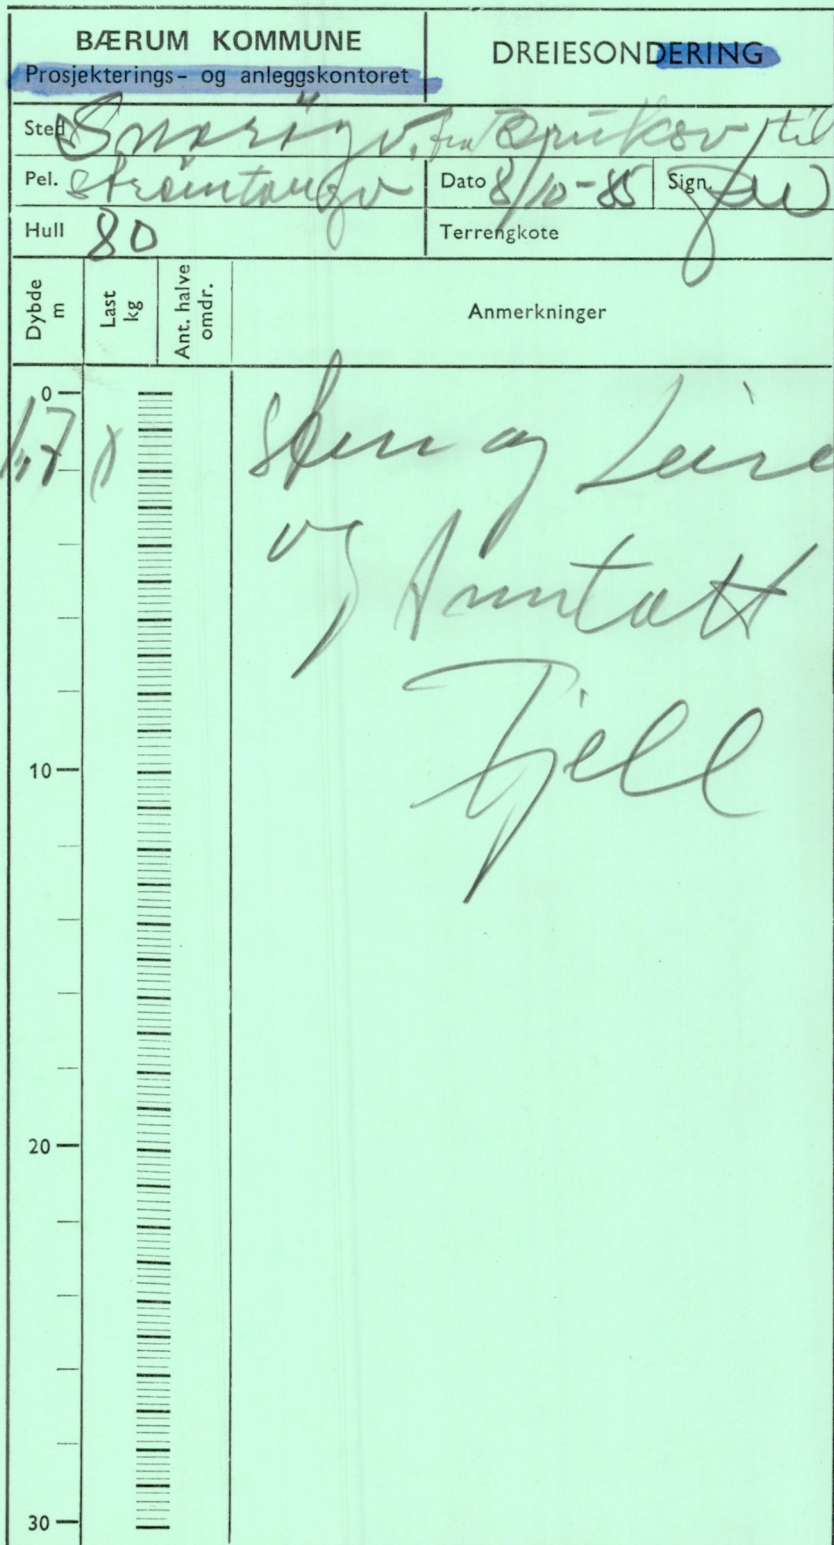 BÆRUM KOMMUNE
Prosjekterings- og anleggskontoret
DREIESONDERING
Sted Snarøyv. fra Bruksv til
Pel. strømtangv
Dato 8/10-85 Sign.
Hull 80
Terrengkote
Dybde m
Last kg
Ant. halve omdr.
Anmerkninger
0
1,7
sten og Leire
og Anntatt
Fjell
10
20
30